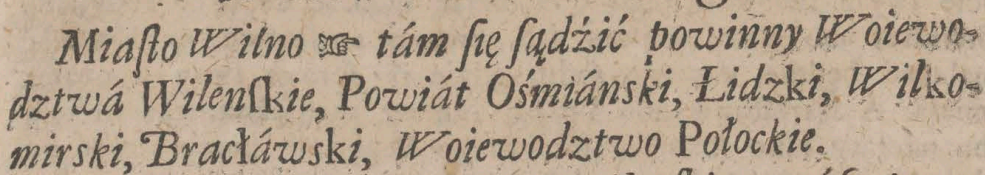 Miaſto Wilno ☞ tám ſię ſądźić powinny Woiewo-
dztwá Wilenſkie, Powiát Ośmiánski, Łidzki, Wilko-
mirski, Bracłáwski, Woiewodztwo Połockie.